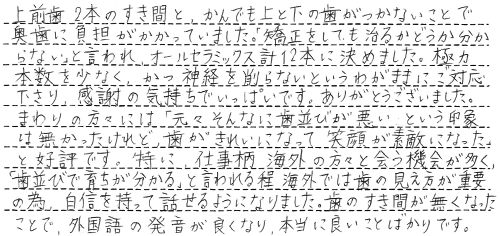 上前歯2本のすき間と、かんでも上と下の歯がつかないことで
奥歯に負担がかかっていました。矯正をしても治るかどうか分か
らない。と言われ、オールセラミックス計12本に決めました。極力
本数を少なく、かつ神経を削らないというわがままにご対応
下さり、感謝の気持ちでいっぱいです。ありがとうございました。
まわりの方々には「元々そんなに歯並びが悪いという印象
は無かったけれど、歯がきれいになって笑顔が素敵になった」
と好評です。特に、仕事柄、海外の方々と会う機会が多く、
「歯並びで育ちが分かる」と言われる程、海外では歯の見え方が重要
の為、自信を持って話せるようになりました。歯のすき間が無くなった
ことで、外国語の発音が良くなり、本当に良いことばかりです。